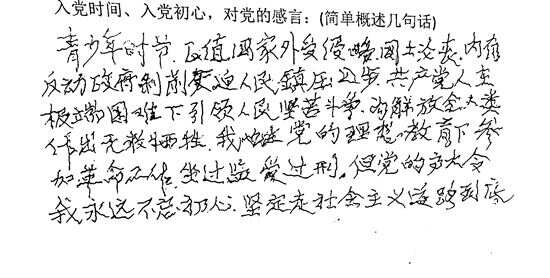 入党时间、入党初心，对党的感言：(简单概述几句话)
青少年时节，正值国家外受侵略国土沦丧，内有
反动政府剥削压迫人民镇压进步，共产党人在
极端困难下引领人民坚苦斗争，为解放全人类
作出无数牺牲，我也是党的理想教育下参
加革命工作，坐过监受过刑。但党的
我永远不忘初心，坚定走社会主义道路到底